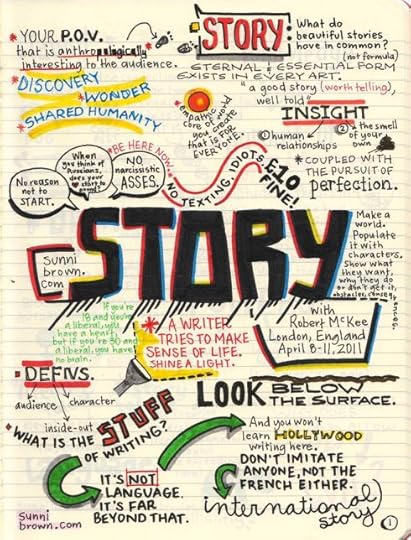 *YOUR P.O.V.
that is anthropologically
interesting to the audience.
*DISCOVERY
*WONDER
*SHARED HUMANITY
STORY:
What do
beautiful stories
have in common?
(not formula)
ETERNAL, ESSENTIAL FORM
EXISTS IN EVERY ART.
"a good story (worth telling),
well told"
INSIGHT
① human
relationships
② the smell
of your
own
*COUPLED WITH
THE PURSUIT OF
perfection.
*empathic
core of world
you create
that is FOR
EVERYONE.
*BE HERE NOW.
NO TEXTING, IDIOTS
£10
FINE!
No reason
not to
START.
When
you think of
does your
start to
NO
narcissistic
ASSES.
STORY
sunni
brown.
com
Make a
world.
Populate
it with
characters.
Show what
they want,
why they do
or don't get it,
obstacles, consequences.
with
Robert McKee
London, England
April 8-11, 2011
If you're
18 and you're
a liberal, you
have a heart,
but if you're 50 and
a liberal, you have
no brain.
*A WRITER
TRIES TO MAKE
SENSE OF LIFE.
SHINE A LIGHT.
DEFINS.
audience
character
inside-out
LOOK BELOW
THE SURFACE.
*WHAT IS THE STUFF
OF WRITING?
IT'S NOT
LANGUAGE.
IT'S FAR
BEYOND THAT.
And you won't
learn HOLLYWOOD
writing here.
DON'T IMITATE
ANYONE, NOT THE
FRENCH EITHER.
international
story
sunni
brown.com
①